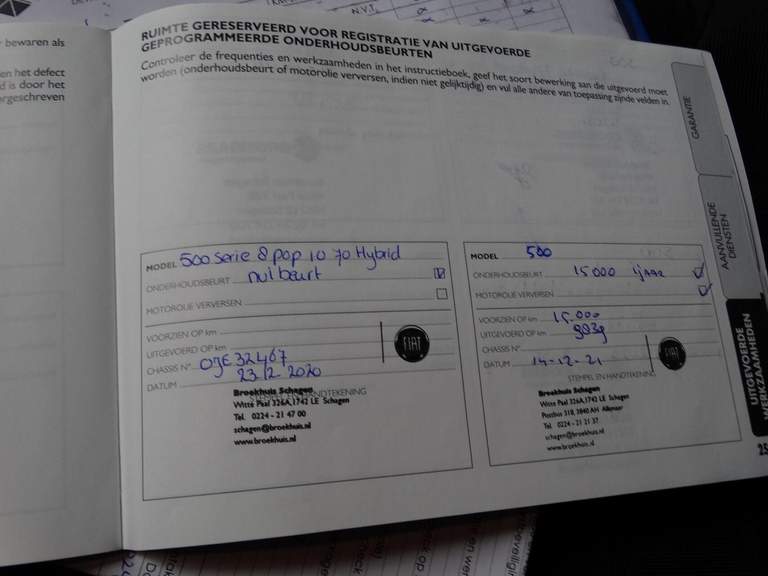 N.V.T.
bewaren als
en het defect
d is door het
orgeschreven
RUIMTE GERESERVEERD VOOR REGISTRATIE VAN UITGEVOERDE
GEPROGRAMMEERDE ONDERHOUDSBEURTEN
Controleer de frequenties en werkzaamheden in het instructieboek, geef het soort bewerking aan die uitgevoerd moet
worden (onderhoudsbeurt of motorolie verversen, indien niet gelijktijdig) en vul alle andere van toepassing zijnde velden in.
GARANTIE
AANVULLENDE
DIENSTEN
UITGEVOERDE
WERKZAAMHEDEN
MODEL 500 Serie 8 pop 10 70 Hybrid
ONDERHOUDSBEURT nulbeurt
MOTOROLIE VERVERSEN
VOORZIEN OP km
UITGEVOERD OP km
CHASSIS N° 0JE32467
DATUM 23/2 2020
FIAT
STEMPEL EN HANDTEKENING
Broekhuis Schagen
Witte Paal 326A, 1742 LE Schagen
Tel. 0224 - 21 47 00
schagen@broekhuis.nl
www.broekhuis.nl
MODEL 500
ONDERHOUDSBEURT 15000 1jaar
MOTOROLIE VERVERSEN
VOORZIEN OP km 15.000
UITGEVOERD OP km 9839
CHASSIS N°
DATUM 14-12-21
FIAT
STEMPEL EN HANDTEKENING
Broekhuis Schagen
Witte Paal 326A, 1742 LE Schagen
Postbus 318, 1840 AH Alkmaar
Tel. 0224 - 21 21 37
schagen@broekhuis.nl
www.broekhuis.nl
25